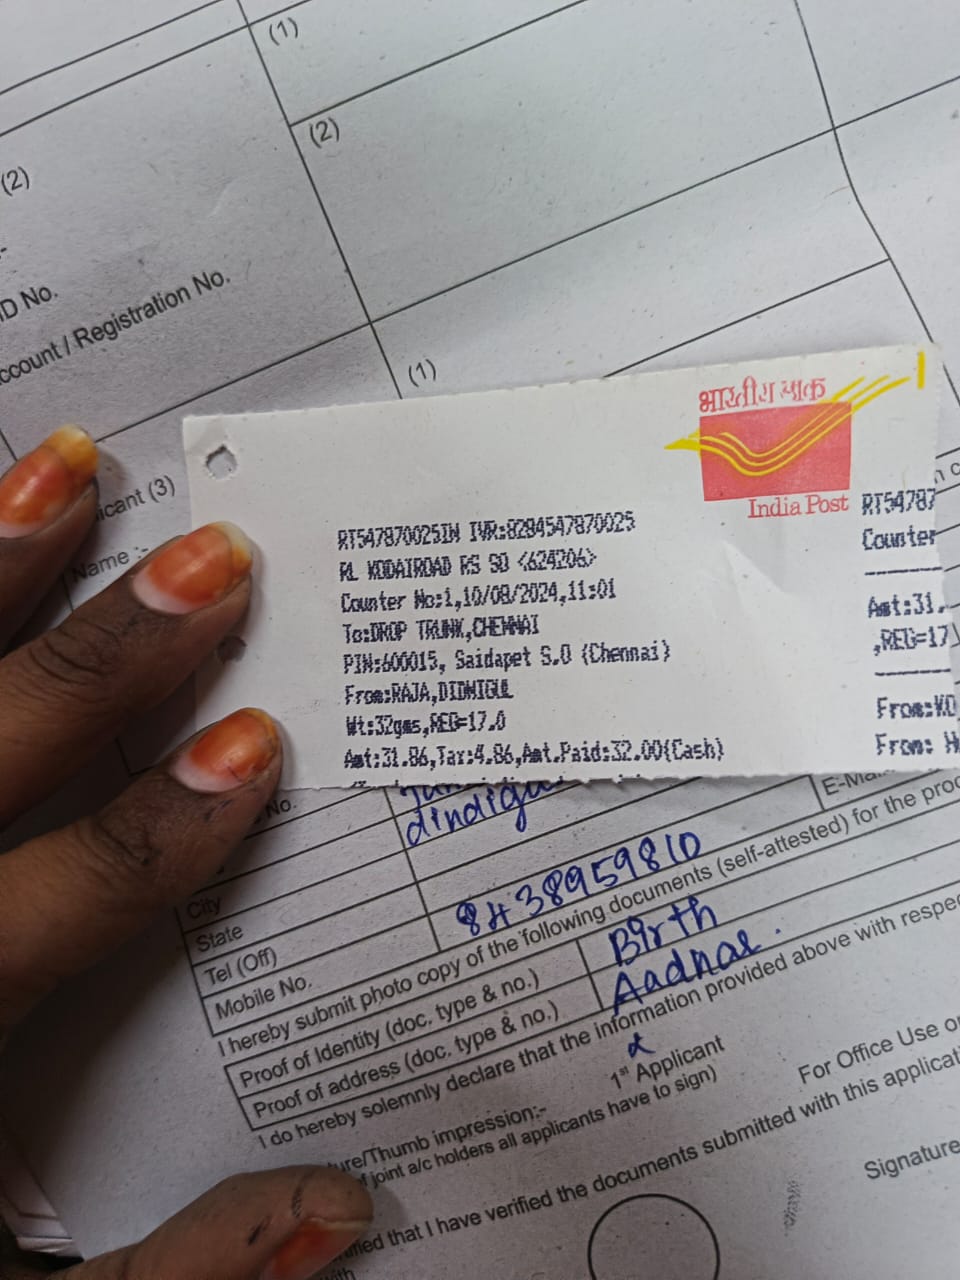 (1)
(2)
(2)
ID No.
ccount / Registration No.
(1)
icant (3)
Name :-
भारतीय डाक
India Post
RT547870025IN IVR:8284547870025
RL KODAIROAD RS SO <624206>
Counter No:1,10/08/2024,11:01
To:DROP TRUNK,CHENNAI
PIN:600015, Saidapet S.O (Chennai)
From:RAJA,DIDNIGUL
Wt:32gms,REG=17.0
Amt:31.86,Tax:4.86,Amt.Paid:32.00(Cash)
RT54787
Counter
Amt:31.
,REG=17
From:KO
From: H
No.
dindigu
City
State
Tel (Off)
E-Ma
Mobile No.
8438959810
I hereby submit photo copy of the following documents (self-attested) for the proo
Proof of Identity (doc. type & no.)
Birth
Proof of address (doc. type & no.)
Aadhar.
I do hereby solemnly declare that the information provided above with respec
1st Applicant
ure/Thumb impression:-
f joint a/c holders all applicants have to sign)
For Office Use o
ified that I have verified the documents submitted with this applicati
with
Signature